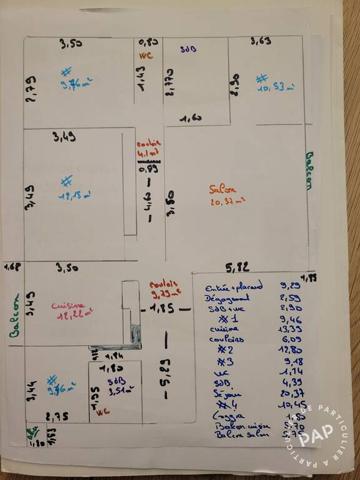 3,50
0,80
WC
SdB
3,63
2,79
#
9,76 m²
1,43
2,70
2,90
#
10,53 m²
1,60
3,49
couloir
4,1 m²
0,89
Balcon
3,49
#
12,18 m²
4,60
3,80
Salon
20,37 m²
1,68
3,50
couloir
9,79 m²
5,82
1,88
Balcon
3,49
cuisine
12,22 m²
1,85
1,84
3,44
#
9,46 m²
1,95
SdB
3,51 m²
5,29
2,75
WC
Entrée+placard 9,29
Dégagement 2,59
SdB+wc 2,90
# 1 9,46
cuisine 13,39
couloirs 6,09
# 2 12,80
# 3 9,18
WC 1,14
SdB 4,39
Séjour 20,37
# 4 10,45
Loggia 1,80
Balcon cuisine
Balcon salon
DE PARTICULIER À PARTICULIER
PAP